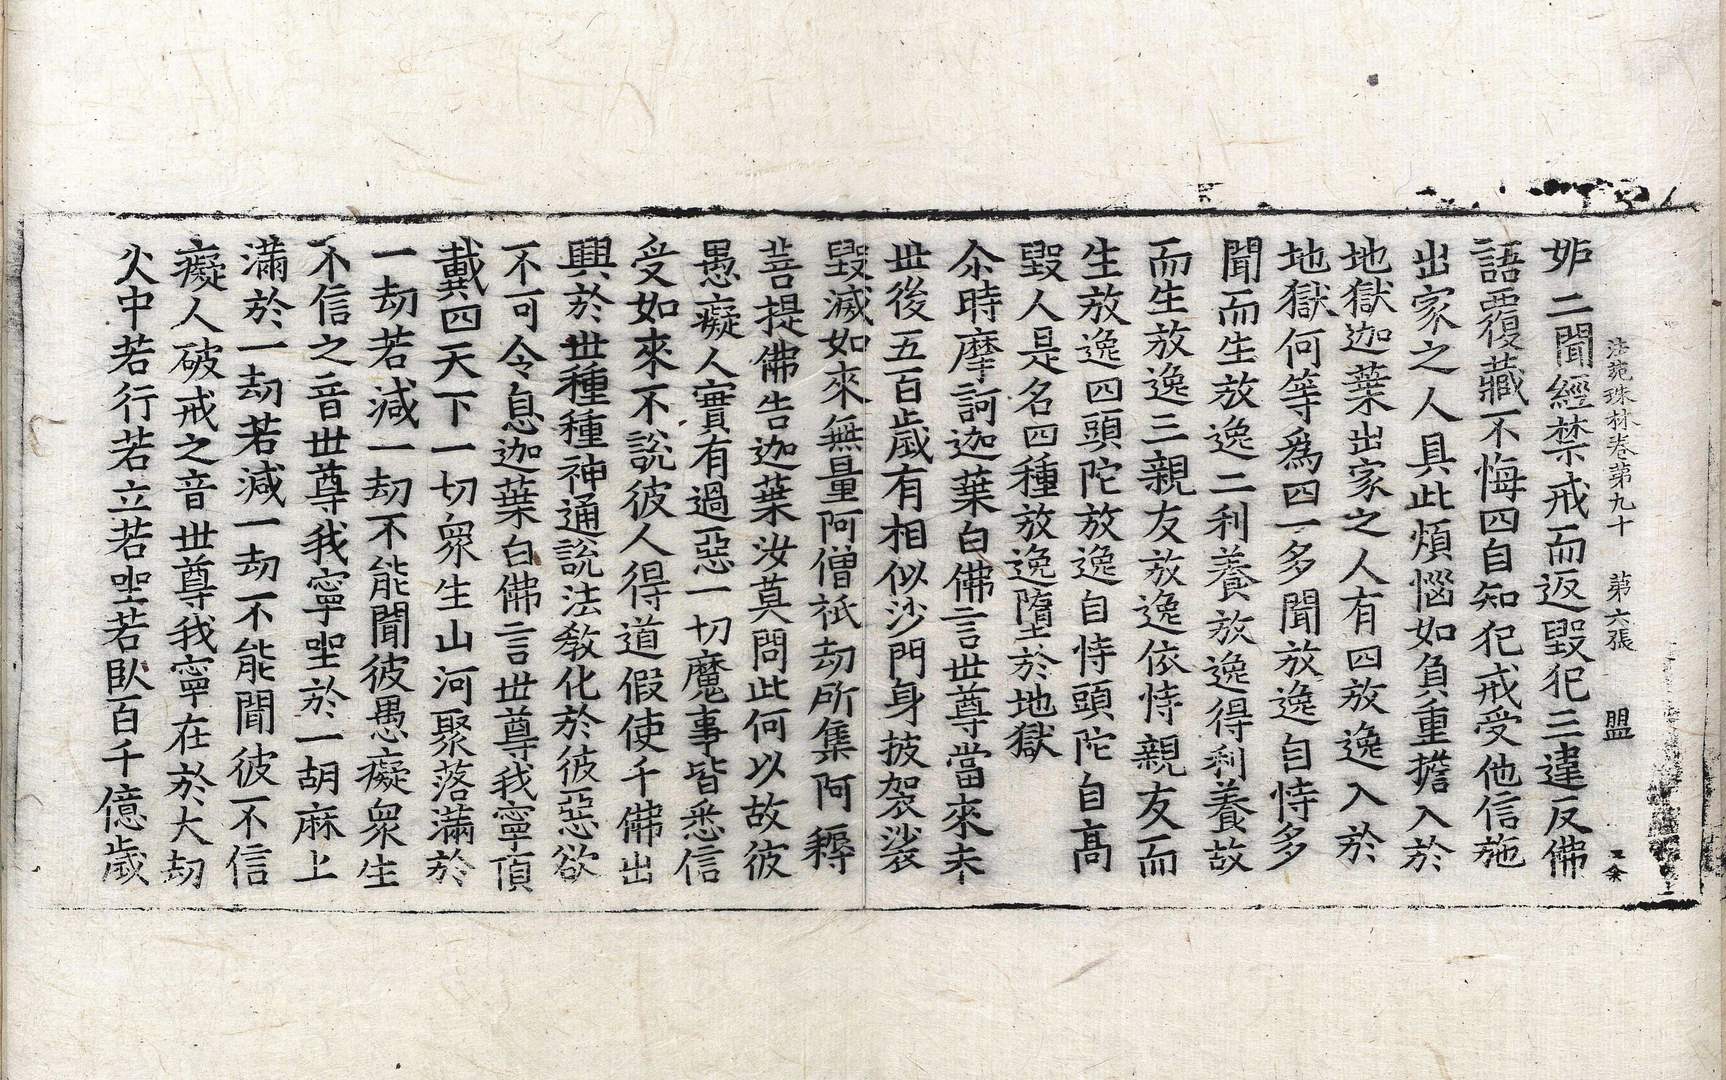 法苑珠林卷第九十　第六張　盟
妬二聞經禁戒而返毀犯三違反佛
語覆藏不悔四自知犯戒受他信施
出家之人具此煩惱如負重擔入於
地獄迦葉出家之人有四放逸入於
地獄何等爲四一多聞放逸自恃多
聞而生放逸二利養放逸得利養故
而生放逸三親友放逸依恃親友而
生放逸四頭陀放逸自恃頭陀自高
毀人是名四種放逸墮於地獄
尒時摩訶迦葉白佛言世尊當來末
世後五百歲有相似沙門身披袈裟
毀滅如來無量阿僧祇劫所集阿耨
菩提佛告迦葉汝莫問此何以故彼
愚癡人實有過惡一切魔事皆悉信
受如來不說彼人得道假使千佛出
興於世種種神通說法教化於彼惡欲
不可令息迦葉白佛言世尊我寧頂
戴四天下一切衆生山河聚落滿於
一劫若減一劫不能聞彼愚癡衆生
不信之音世尊我寧坐於一胡麻上
滿於一劫若減一劫不能聞彼不信
癡人破戒之音世尊我寧在於大劫
火中若行若立若坐若臥百千億歲